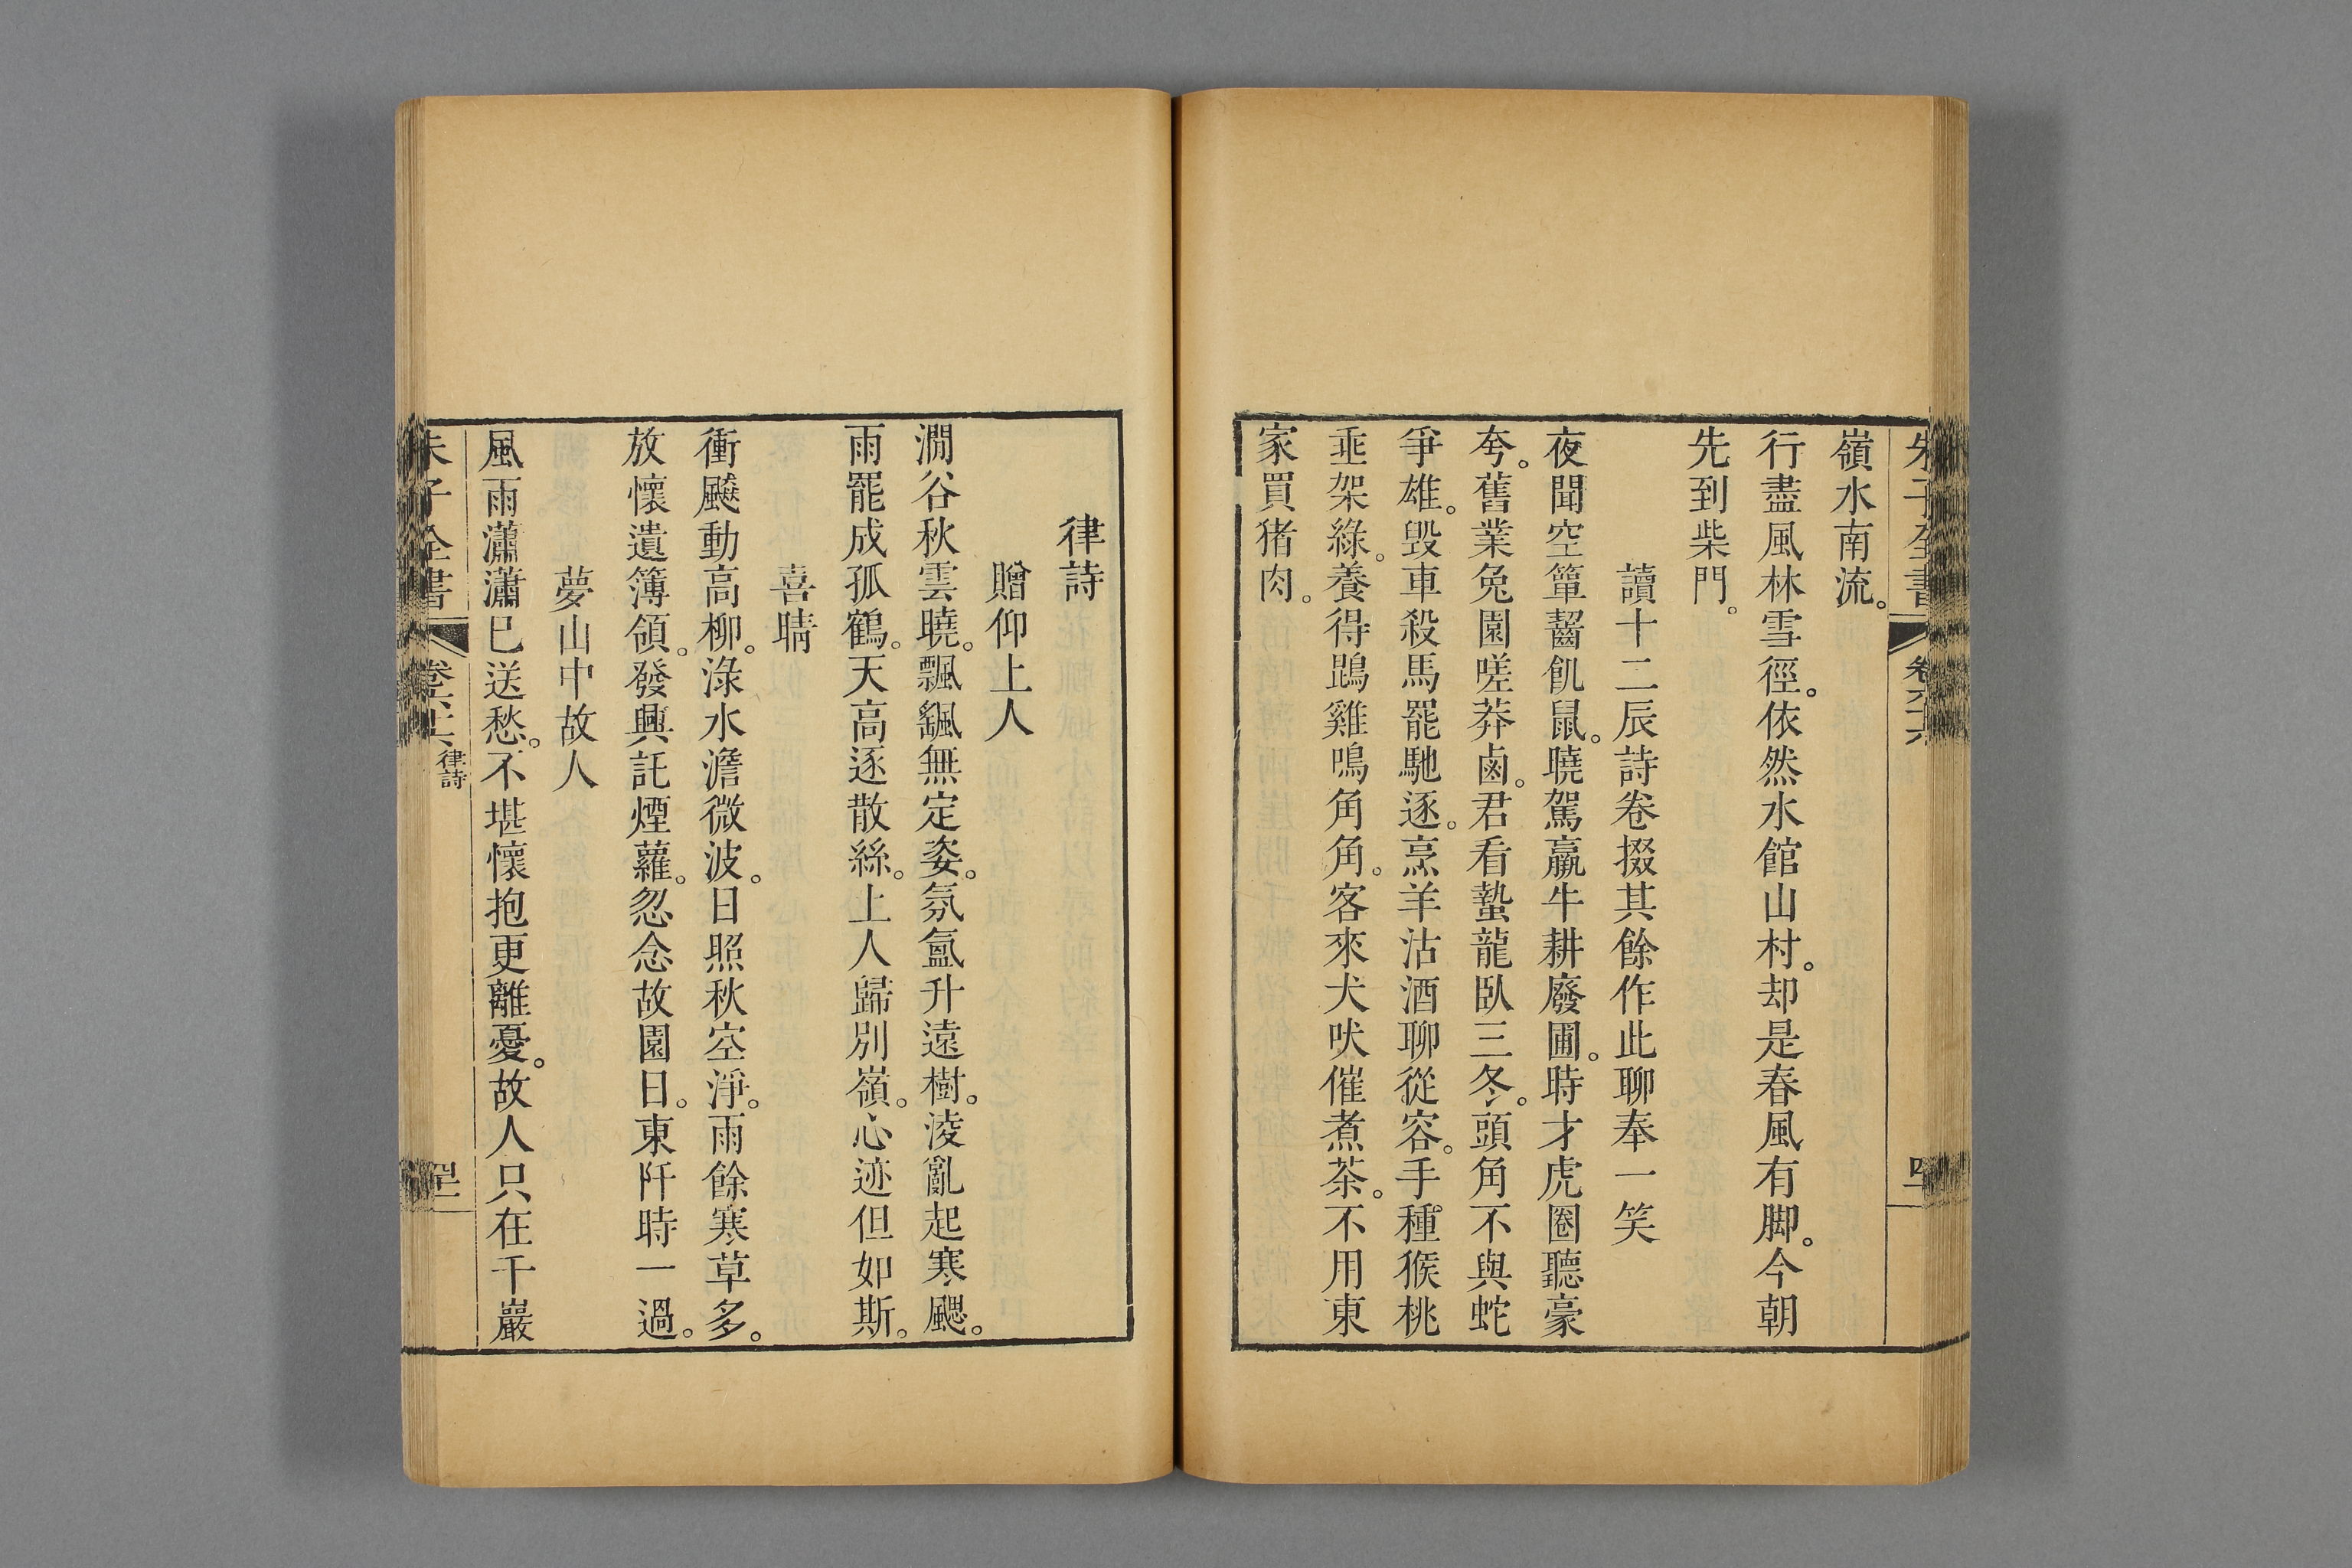 嶺水南流。
行盡風林雪徑。依然水館山村。却是春風有脚。今朝
先到柴門。
讀十二辰詩卷掇其餘作此聊奉一笑
夜聞空簞齧飢鼠。曉駕羸牛耕廢圃。時才虎圈聽豪
夸。舊業兔園嗟莽鹵。君看蟄龍臥三冬。頭角不與蛇
爭雄。毀車殺馬罷馳逐。烹羊沽酒聊從容。手種猴桃
垂架綠。養得鵾雞鳴角角。客來犬吠催煮茶。不用東
家買猪肉。
律詩
贈仰上人
澗谷秋雲曉。飄颻無定姿。氛氳升遠樹。淩亂起寒颸。
雨罷成孤鶴。天高逐散絲。上人歸別嶺。心迹但如斯。
喜晴
衝飈動高柳。淥水澹微波。日照秋空淨。雨餘寒草多。
放懷遺簿領。發興託煙蘿。忽念故園日。東阡時一過。
夢山中故人
風雨瀟瀟已送愁。不堪懷抱更離憂。故人只在千巖
朱子全書
律詩